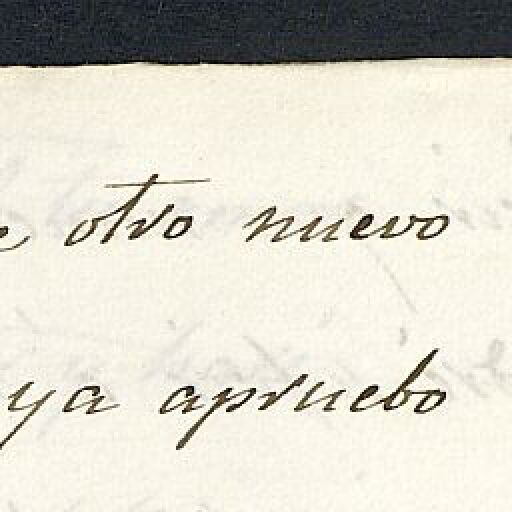 otro nuevo
ya apruebo